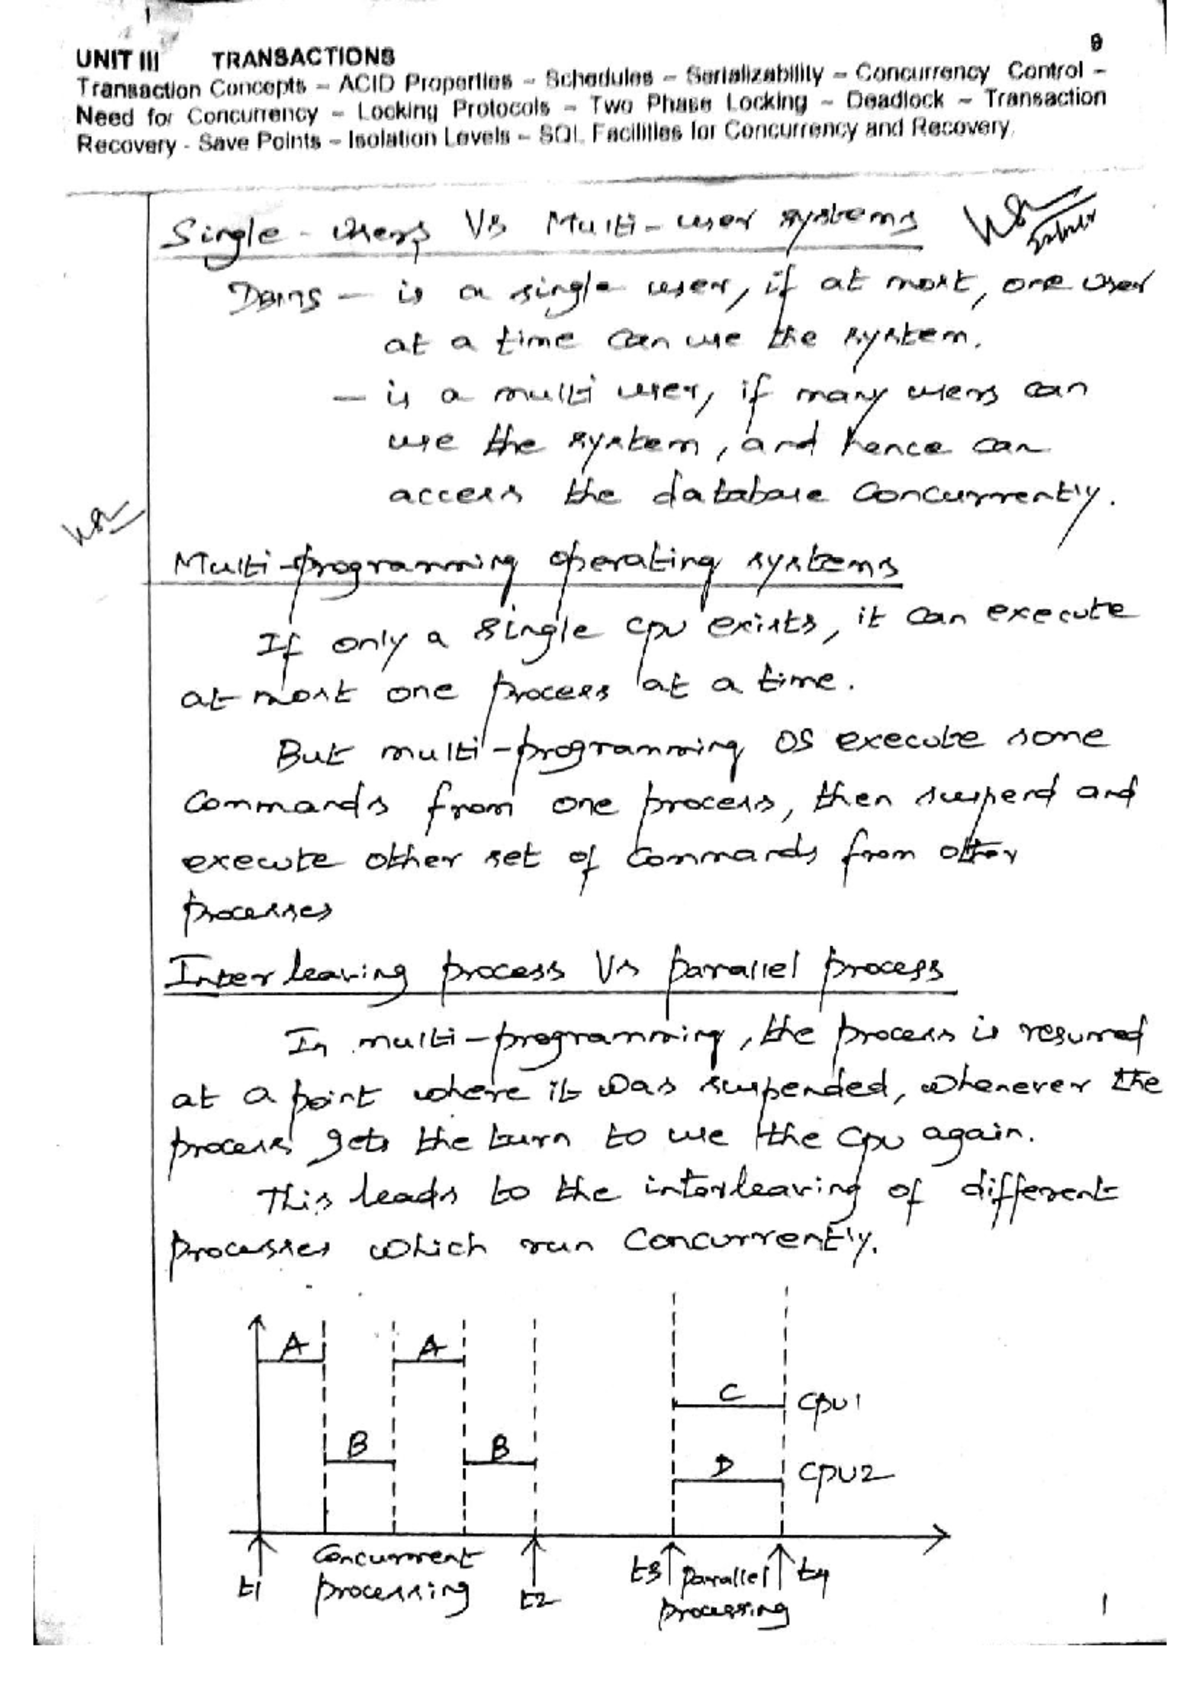 9
UNIT III TRANSACTIONS
Transaction Concepts – ACID Properties – Schedules – Serializability – Concurrency Control –
Need for Concurrency – Locking Protocols – Two Phase Locking – Deadlock – Transaction
Recovery - Save Points – Isolation Levels – SQL Facilities for Concurrency and Recovery.
Single-users Vs Multi-user systems
DBMS – is a single user, if at most, one user
at a time can use the system.
– is a multi user, if many users can
use the system, and hence can
access the database concurrently.
Multi-programming operating systems
If only a single cpu exists, it can execute
at most one process at a time.
But multi-programming OS execute some
commands from one process, then suspend and
execute other set of commands from other
processes
Interleaving process Vs parallel process
In multi-programming, the process is resumed
at a point where it was suspended, whenever the
process gets the turn to use the cpu again.
This leads to the interleaving of different
processes which run concurrently.
A A
C CPU1
B B
D CPU2
t1 Concurrent processing t2 t3 parallel processing t4
1